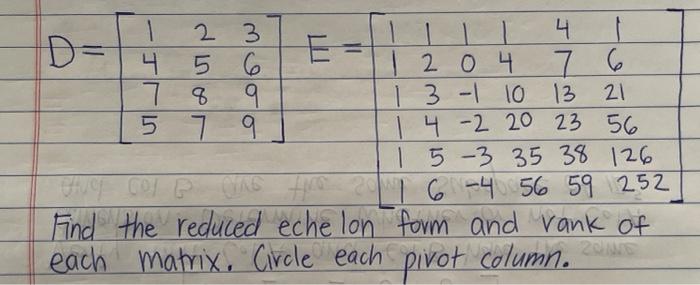 D = [ 1 2 3 E = [ 1 1 1 1 4 1
4 5 6 1 2 0 4 7 6
7 8 9 1 3 -1 10 13 21
5 7 9 ] 1 4 -2 20 23 56
1 5 -3 35 38 126
1 6 -4 56 59 252 ]
Find the reduced echelon form and rank of
each matrix. Circle each pivot column.